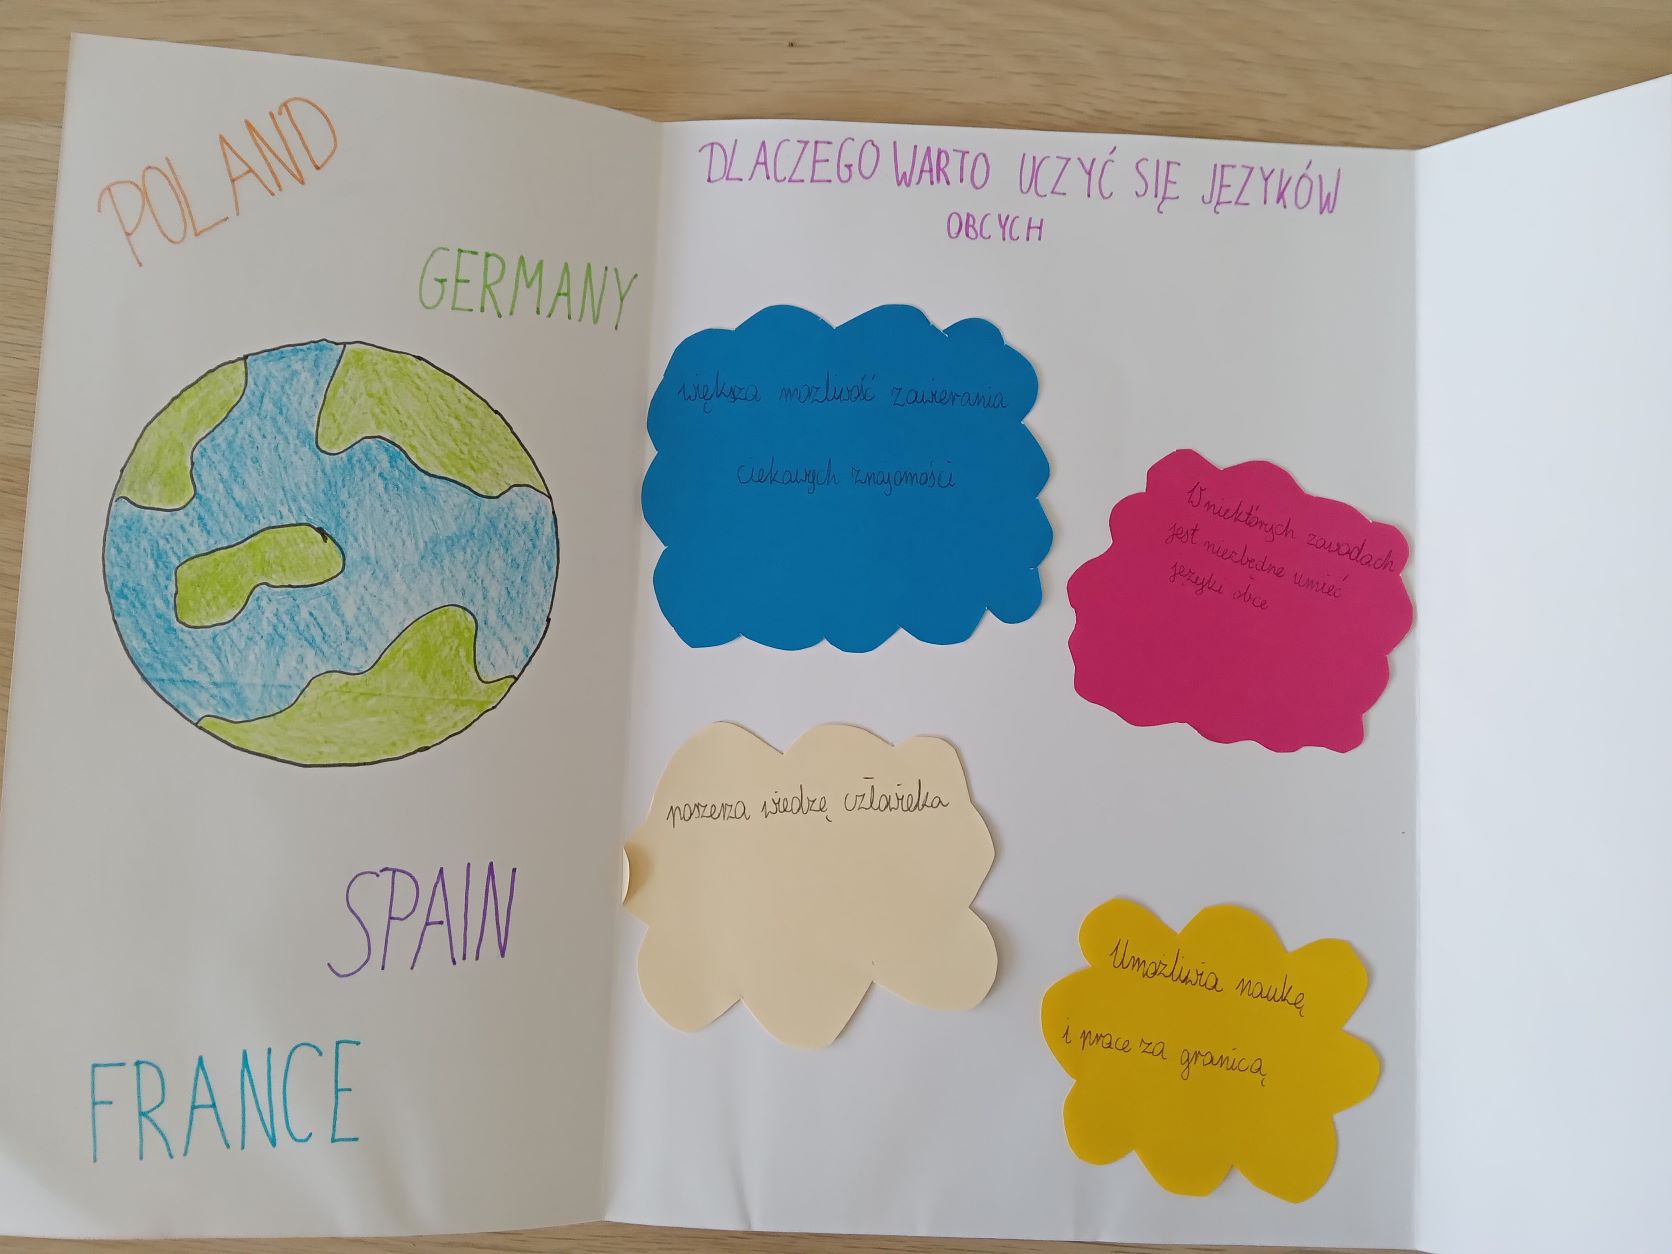 POLAND
GERMANY
SPAIN
FRANCE
DLACZEGO WARTO UCZYĆ SIĘ JĘZYKÓW
OBCYCH
większa możliwość zawierania
ciekawych znajomości
W niektórych zawodach
jest niezbędne umieć
języki obce
poszerza wiedzę człowieka
Umożliwia naukę
i prace za granicą